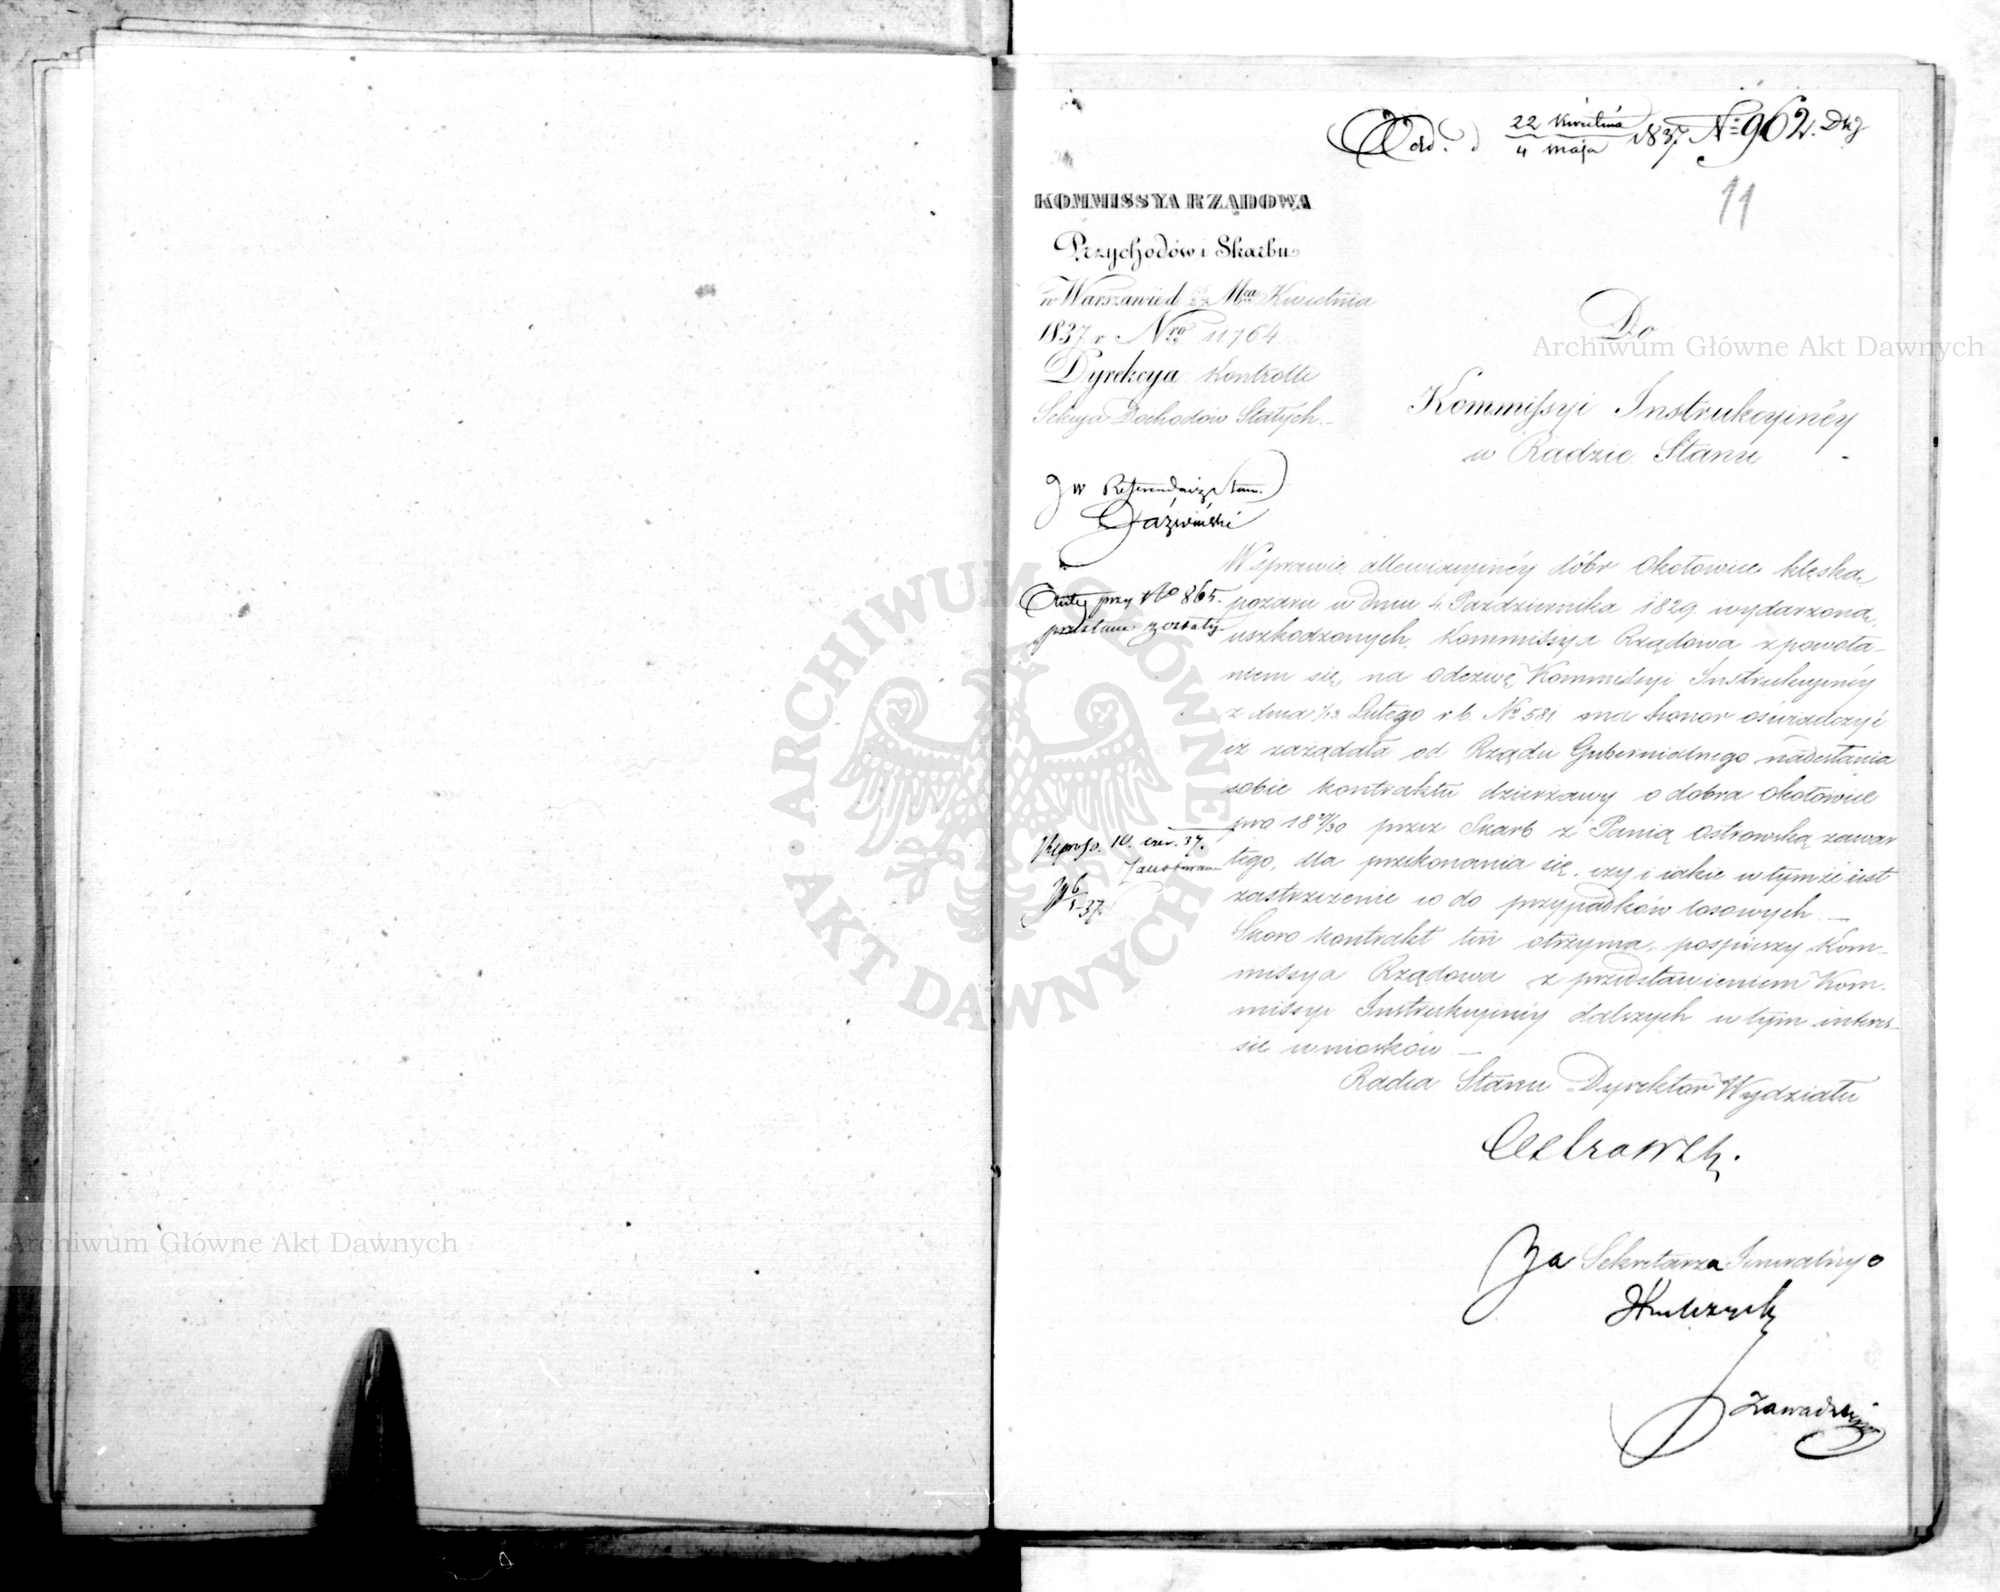 Odd. d 22 Kwietnia 1837 Nº 962. Dkg
4 Maja
11
KOMMISSYA RZĄDOWA
Przychodów i Skarbu
w Warszawie d. Mca Kwietnia
1837 r Nro 11764
Dyrekcya Kontrolli
Sekcya Dochodów Stałych.
Do
Kommissyi Instrukcyinéy
w Radzie Stanu
JW Referendarz Stanu
Akta przy No 865.
przesłane zostały
W sprawie allewiacyinéy dóbr Okołowice klęską
pożaru w dniu 4 Października 1829 wydarzoną
uszkodzonych, Kommissya Rządowa z powoła-
niem się na odezwę Kommissyi Instrukcyinéy
z dnia 1/13 Lutego r.b. No 581 ma honor oświadczyć
iż zażądała od Rządu Gubernialnego nadesłania
sobie kontraktu dzierżawy o dobra Okołowice
pro 1829/30 przez Skarb z Panią Ostrowską zawar
tego, dla przekonania się, czy i iakie w tymże iest
zastrzeżenie co do przypadków losowych. —
Skoro kontrakt ten otrzyma, pospieszy Kom-
missya Rządowa z przedstawieniem Kom-
missyi Instrukcyinéy dalszych w tym intere-
sie wniosków —
10. czer. 37.
6/5 37.
Radca Stanu Dyrektor Wydziału
Za Sekretarza Jeneralnego
Zawadzki
Archiwum Główne Akt Dawnych
Archiwum Główne Akt Dawnych
ARCHIWUM GŁÓWNE · AKT DAWNYCH ·